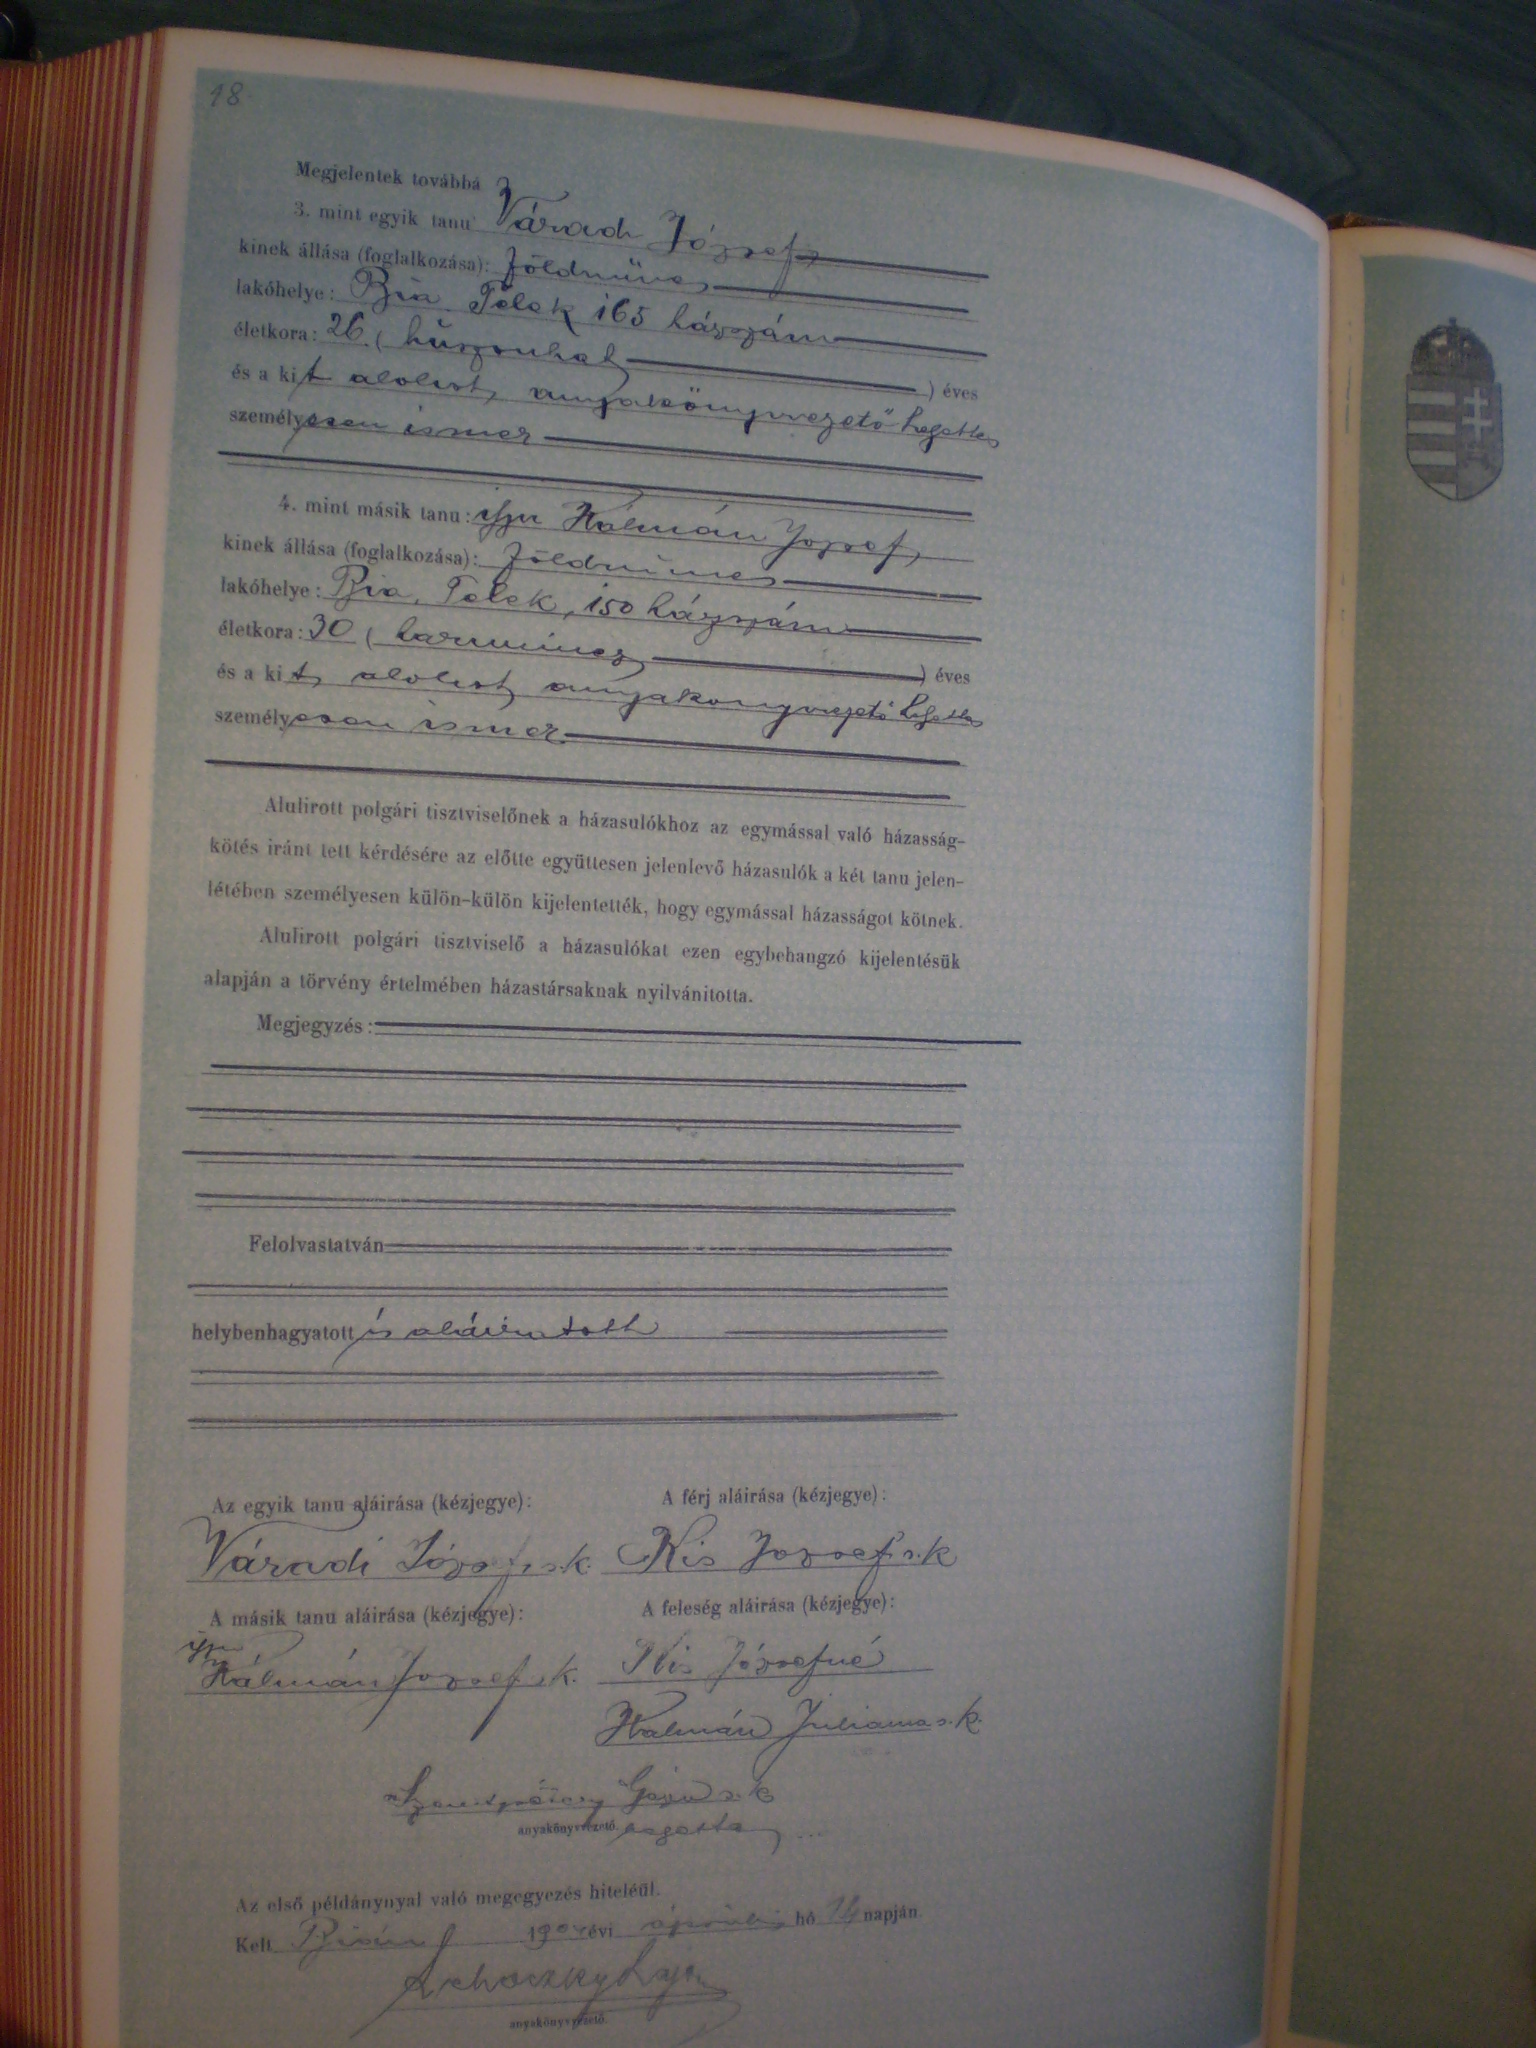 18
Megjelentek továbbá
3. mint egyik tanu Váradi József
kinek állása (foglalkozása): földmüves
lakóhelye: Bia Telek 165 házszám
életkora: 26 (huszonhat) éves
és a kit alolirt, anyakönyvvezető helyettes
személyesen ismer
4. mint másik tanu: ifju Kálmán József
kinek állása (foglalkozása): földmives
lakóhelye: Bia, Telek, 150 házszám
életkora: 30 (harmincz) éves
és a kit, alolirt, anyakönyvvezető helyettes
személyesen ismer
Alulirott polgári tisztviselőnek a házasulókhoz az egymással való házasság-
kötés iránt tett kérdésére az előtte együttesen jelenlevő házasulók a két tanu jelen-
létében személyesen külön-külön kijelentették, hogy egymással házasságot kötnek.
Alulirott polgári tisztviselő a házasulókat ezen egybehangzó kijelentésük
alapján a törvény értelmében házastársaknak nyilvánitotta.
Megjegyzés:
Felolvastatván
helybenhagyatott és aláiratott
Az egyik tanu aláirása (kézjegye): A férj aláirása (kézjegye):
Váradi József s.k. Kis Jozsef s.k
A másik tanu aláirása (kézjegye): A feleség aláirása (kézjegye):
ifju Kálmán Jozsef s.k. Kis Józsefné
Kalmán Juliánna s.k.
Géza s.k
anyakönyvvezető.
Az első példánynyal való megegyezés hiteléül.
Kelt Bián 190 évi április hó napján.
Lajos
anyakönyvvezető.